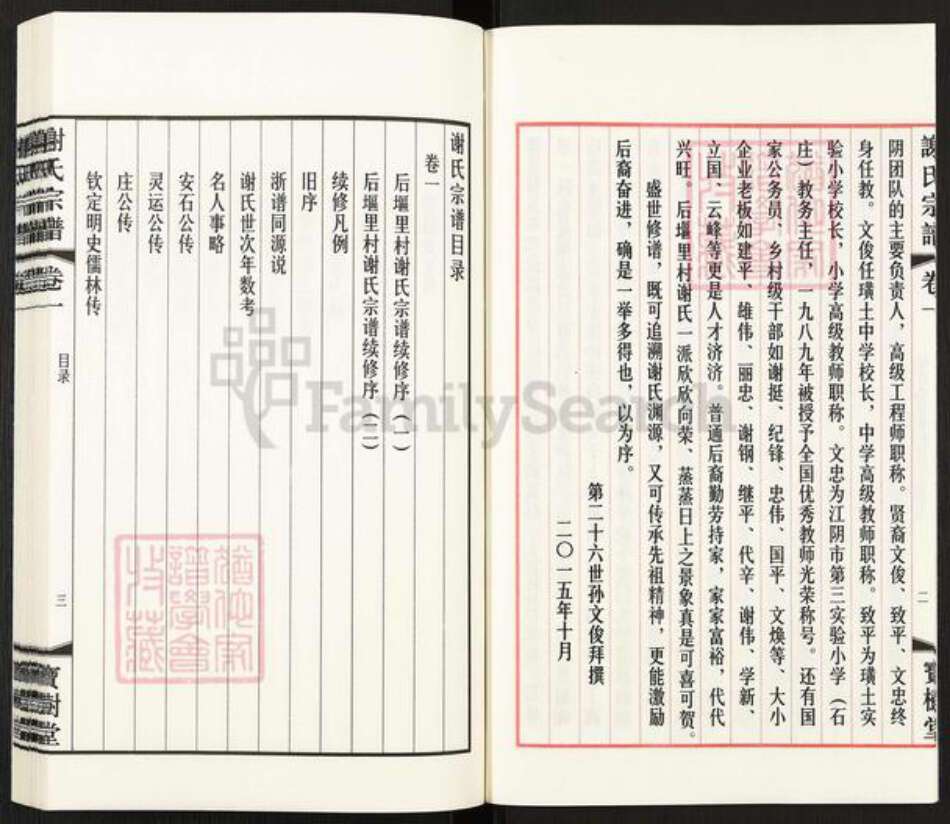 謝氏宗譜 卷一
二
寶樹堂
阴团队的主要负责人，高级工程师职称。贤裔文俊、致平、文忠终
身任教。文俊任璜土中学校长，中学高级教师职称。致平为璜土实
验小学校长，小学高级教师职称。文忠为江阴市第三实验小学（石
庄）教务主任，一九八九年被授予全国优秀教师光荣称号。还有国
家公务员、乡村级干部如谢挺、纪锋、忠伟、国平、文焕等、大小
企业老板如建平、雄伟、丽忠、谢钢、继平、代辛、谢伟、学新、
立国、云峰等更是人才济济。普通后裔勤劳持家，家家富裕，代代
兴旺。后堰里村谢氏一派欣欣向荣、蒸蒸日上之景象真是可喜可贺。
盛世修谱，既可追溯谢氏渊源，又可传承先祖精神，更能激励
后裔奋进，确是一举多得也，以为序。
第二十六世孙文俊拜撰
二〇一五年十月
谢氏宗谱目录
卷一
后堰里村谢氏宗谱续修序（一）
后堰里村谢氏宗谱续修序（二）
续修凡例
旧序
浙谱同源说
谢氏世次年数考
名人事略
安石公传
灵运公传
庄公传
钦定明史儒林传
謝氏宗譜 卷一
目录
三
寶樹堂
FamilySearch